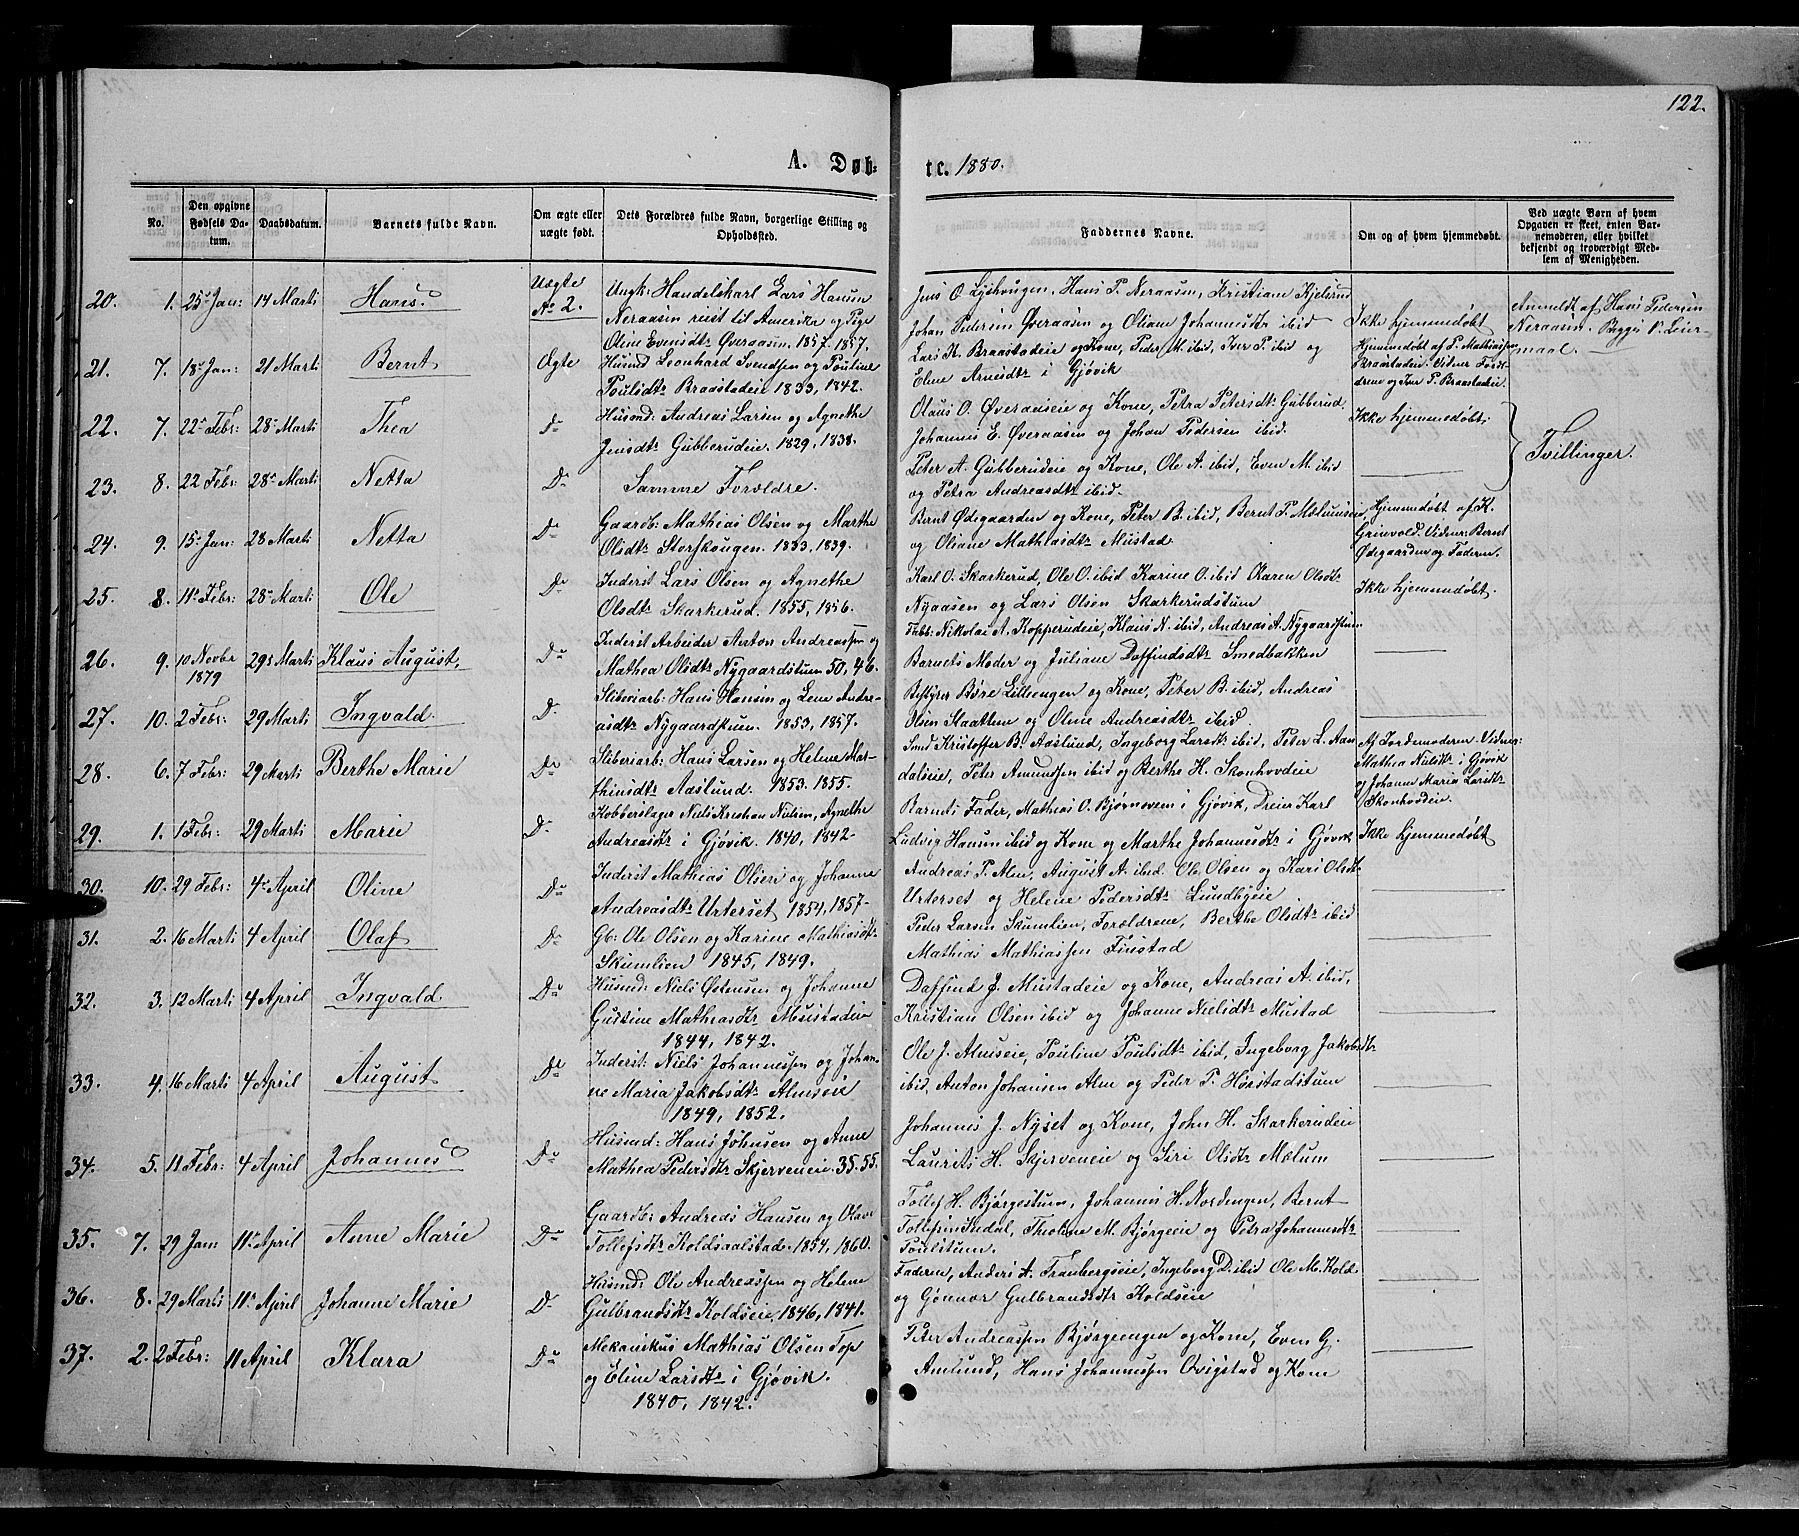 122.
A. Døb-
te. 1880.
No.
Den opgivne Fødsels Datum.
Daabsdatum.
Barnets fulde Navn.
Om ægte eller uægte født.
Dets Forældres fulde Navn, borgerlige Stilling og Opholdssted.
Faddernes Navne.
Om og af hvem hjemmedøbt.
Ved uægte Børn af hvem Opgaven er skeet, enten Barnemoderen, eller hvilket bekjendt og troværdigt Medlem af Menigheden.
20. 1. 25 Jan: 14 Marti Hans. Uægte No 2.
Ungk: Handelskarl Lars Hansen
Neraasen reist til Amerika og Pige
Oline Evensdtr Øveraasen. 1857. 1857.
Jens O Lyshougen, Hans P. Neraasen, Kristiane Kjelsrud
Johan Pedersen Øveraasen og Oliane Johannesdtr ibid
Ikke hjemmedøbt
Anmeldt af Hans Pedersen
Neraasen. Begges 1ste Leiermaal.
21. 7. 18 Jan: 21 Marti Bernt Ægte
Husmd Leonhard Svendsen og Pouline
Poulsdtr Braastadeie 1833, 1842.
Lars K. Braastadeie og Kone, Peder M. ibid, Iver P. ibid og
Eline Arnesdtr i Gjøvik
Hjemmedøbt af P. Mathiassen
Braastadeie. Vidner Forældrene og Iver P. Braastadeie.
22. 7. 22 Febr: 28 Marti Thea Do
Husmd: Andreas Larsen og Agnethe
Jensdtr Gubberudeie. 1829, 1838.
Olaus O. Øveraaseie og Kone, Petra Petersdtr Gubberud,
Johannes E. Øveraasen og Johan Pedersen ibid.
Ikke hjemmedøbt.
Tvillinger.
23. 8. 22 Febr: 28 Marti Netta Do
Samme Forældre.
Peter A. Gubberudeie og Kone, Ole A. ibid, Even M. ibid
og Petra Andreasdtr ibid.
24. 9. 15 Jan: 28 Marti Netta Do
Gaardb: Mathias Olsen og Marthe
Olsdtr Storskougen. 1833, 1839.
Bernt Ødegaarden og Kone, Peter B. ibid, Bernt P. Mælumseie
og Oliane Mathiasdtr Mustad.
Hjemmedøbt af K.
Grinvold. Vidner: Bernt
Ødegaarden og Faderen.
25. 8. 11 Febr: 28 Marti Ole Do
Inderst Lars Olsen og Agnethe
Olsdtr Skarkerud. 1855, 1856.
Karl O. Skarkerud, Ole O. ibid Karine O. ibid Karen Olsdtr
Nyaasen og Lars Olsen Skarkerudstum
Ikke hjemmedøbt.
26. 9. 10 Novbr 1879 29 Marti Klaus August. Do
Inderst Arbeider Anton Andreassen og
Mathea Olsdtr Nygaardstuen 50, 46.
Fabb: Nikolai A. Kopperudeie, Klaus N. ibid, Andreas A. Nygaardstuen
Barnets Moder og Juliane Daffindsdtr Smedbakken
27. 10. 2 Febr: 29 Marti Ingvald. Do
Sliberiarb: Hans Hansen og Lene Andreasdtr Nygaardstuen. 1853, 1857.
Bestyrer Børe Lilleengen og Kone, Peter B. ibid, Andreas
Olsen Slaatten og Oline Andreasdtr ibid.
28. 6. 7 Febr: 29 Marti Berthe Marie Do
Sliberiarb: Hans Larsen og Helene Mathinsdtr Aaslund. 1853. 1855.
Smed Kristoffer B. Aaslund, Ingeborg Larsdtr ibid, Peter L. Aandalseie, Peter Amundsen ibid og Berthe H. Skonhovdeie
Af Jordemoderen. Vidner:
Mathea Nielsdtr i Gjøvik
og Johanne Maria Larsdtr
Skonhovdeie.
29. 1. 1 Febr: 29 Marti Marie Do
Kobberslager Niels Kristian Nielsen, Agnethe
Andreasdtr i Gjøvik. 1840, 1842.
Barnets Fader, Mathias O. Bjørnsveen i Gjøvik, Dreier Karl
Ludvig Hansen ibid og Kone og Marthe Johannesdtr i Gjøvik
Ikke hjemmedøbt
30. 10. 29 Febr: 4 April Oline Do
Inderst Mathias Olsen og Johanne
Andreasdtr Urterset 1854, 1857.
Andreas P. Alm, August A. ibid. Ole Olsen og Kari Olsdtr
Urterset og Helene Pedersdtr Lundbyeie
31. 2. 16 Marti 4 April Olaf Do
Gb: Ole Olsen og Karine Mathiasdtr
Skumlien 1845, 1849.
Peder Larsen Skumlien, Forældrene, Berthe Olsdtr ibid
Mathias Mathiassen Finstad
32. 3. 12 Marti 4 April Ingvald Do
Husmd: Niels Østensen og Johanne
Gustine Mathiasdtr Mustadeie
1844, 1842.
Daffind J. Mustadeie og Kone, Andreas A. ibid,
Kristian Olsen ibid og Johanne Nielsdtr Mustad
33. 4. 16 Marti 4 April August Do
Inderst: Niels Johannessen og Johanne Maria Jakobsdtr Almseie
1849, 1852.
Ole J. Almseie, Pouline Poulsdtr ibid, Ingeborg Jakobsdtr
ibid, Anton Johansen Alm og Peder P. Hørstadstum
34. 5. 11 Febr: 4 April Johannes Do
Husmd: Hans Johnsen og Anne
Mathea Pedersdtr Skjerveneie. 35. 55.
Johannes J. Nyset og Kone, John H. Skarkerudeie
Laurits H. Skjerveneie og Siri Olsdtr Mælum
35. 7. 29 Jan: 11 April Anne Marie Do
Gaardb: Andreas Hansen og Olave
Tollefsdtr Koldsaalstad. 1854, 1860.
Tollef H. Bjørgestum, Johannes H. Nordengen, Bernt
Tollefsen Indal, Tholine M. Bjørgeeie og Petra Johannesdtr
Poulstum.
36. 8. 29 Marti 11 April Johanne Marie Do
Husmd: Ole Andreassen og Helene
Gulbrandsdtr Koldseie, 1846, 1841.
Faderen, Anders A. Tranbergseie, Ingeborg D. ibid Ole M. Kold
og Gønnor Gulbrandsdtr Koldseie
37. 2. 2 Febr: 11 April Klara Do
Mekanikus Mathias Olsen Top
og Eline Larsdtr i Gjøvik.
1840, 1842.
Peter Andreassen Bjørgeengen og Kone, Even G.
Amlund, Hans Johannessen Qvigstad og Kone